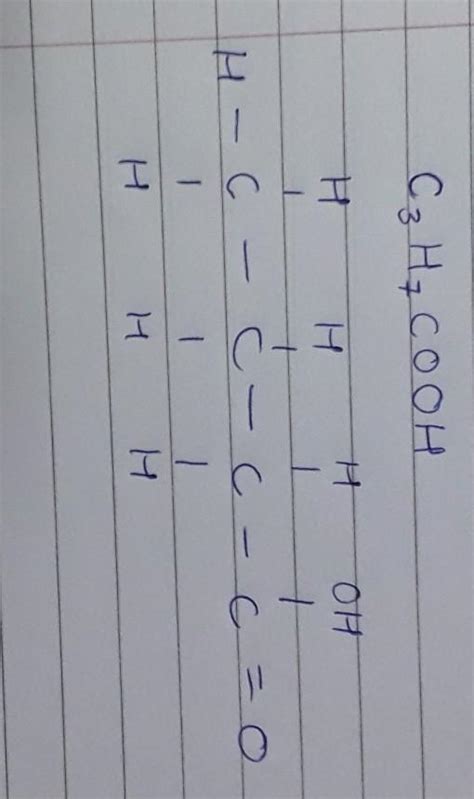 C₃H₇COOH
H H H OH
H – C – C – C – C = O
H H H